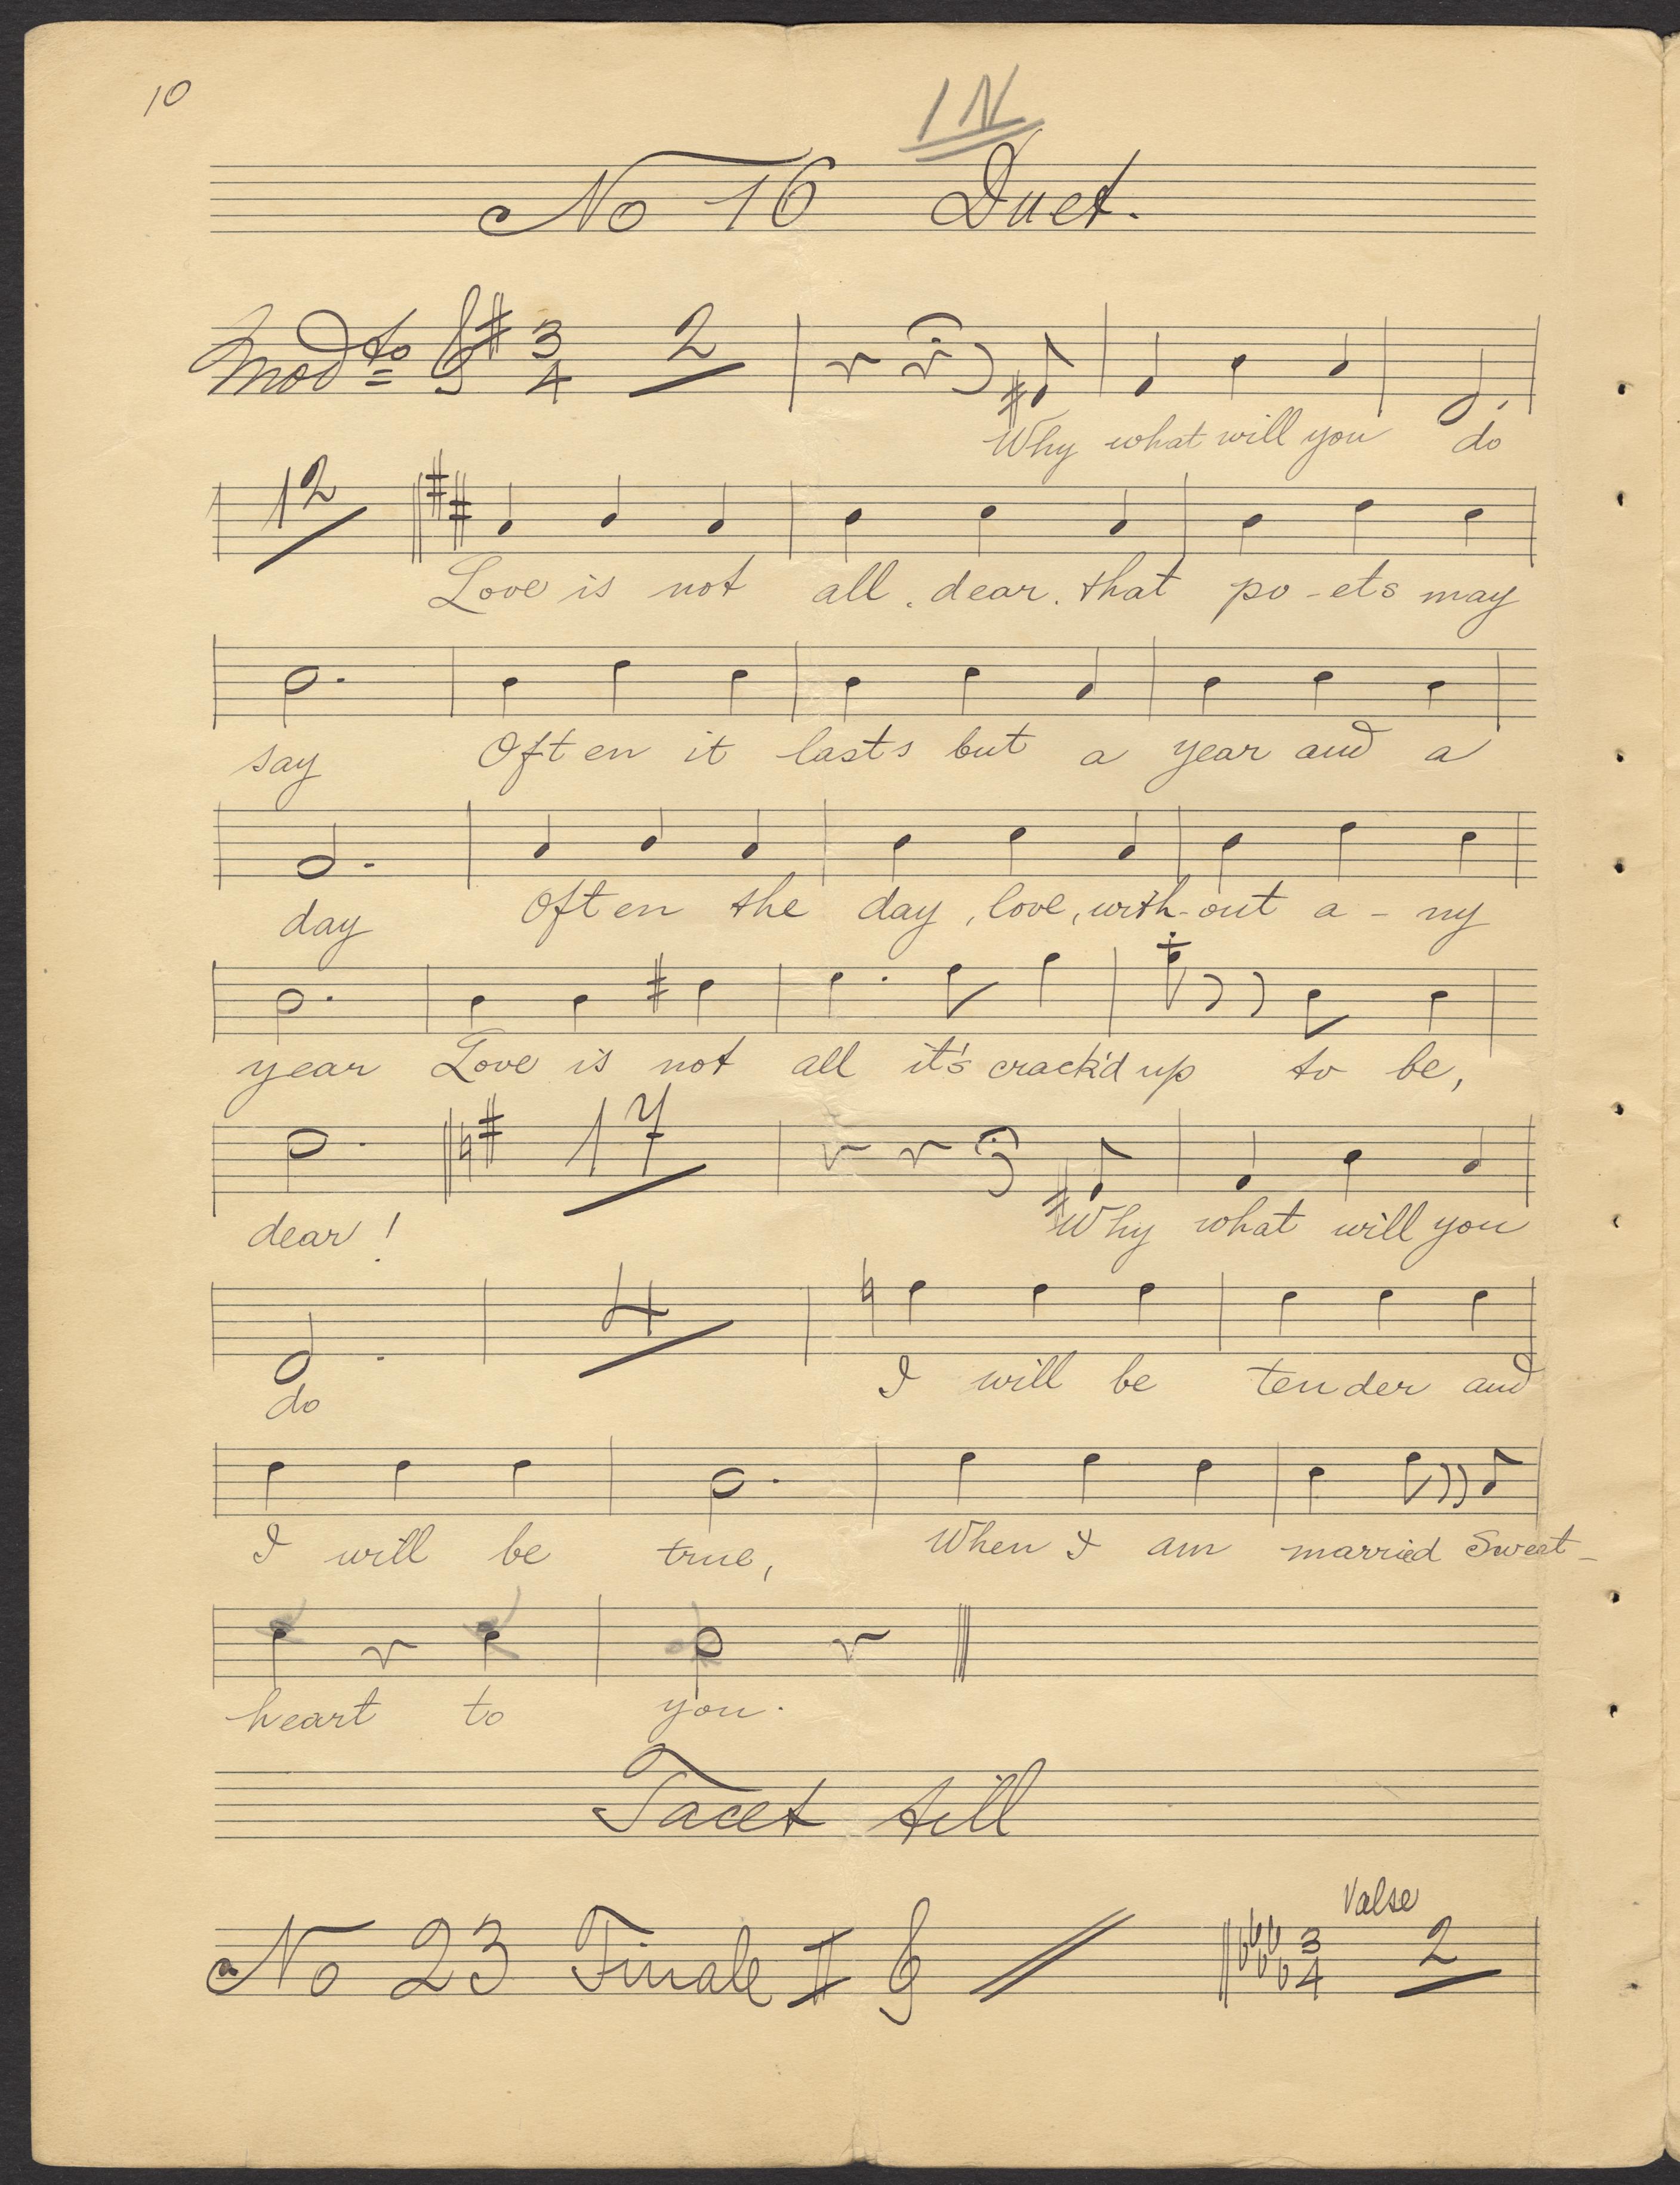 10
IN
No 16 Duet.
Modto 3 4 2
Why what will you do
12
Love is not all, dear, that po-ets may
say Often it lasts but a year and a
day Often the day, love, with-out a-ny
year Love is not all it's crack'd up to be,
17
dear! Why what will you
4
do I will be tender and
I will be true, When I am married Sweet-
heart to you.
Tacet till
Valse
No 23 Finale II 3 4 2